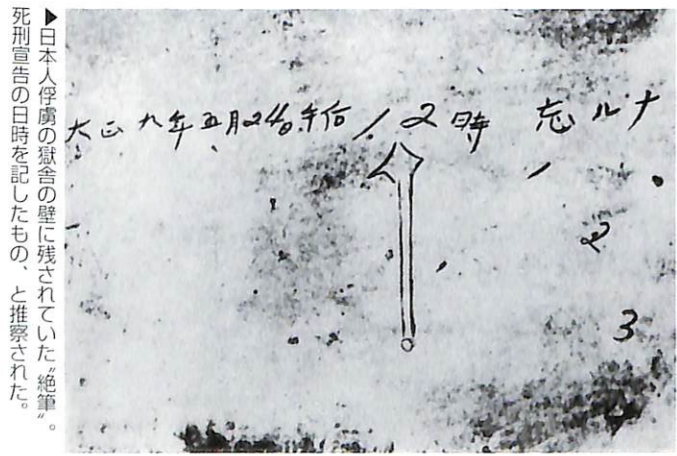 ▶日本人俘虜の獄舎の壁に残されていた〝絶筆〟。
死刑宣告の日時を記したもの、と推察された。
大正九年五月24日午后12時 忘ルナ
2
3